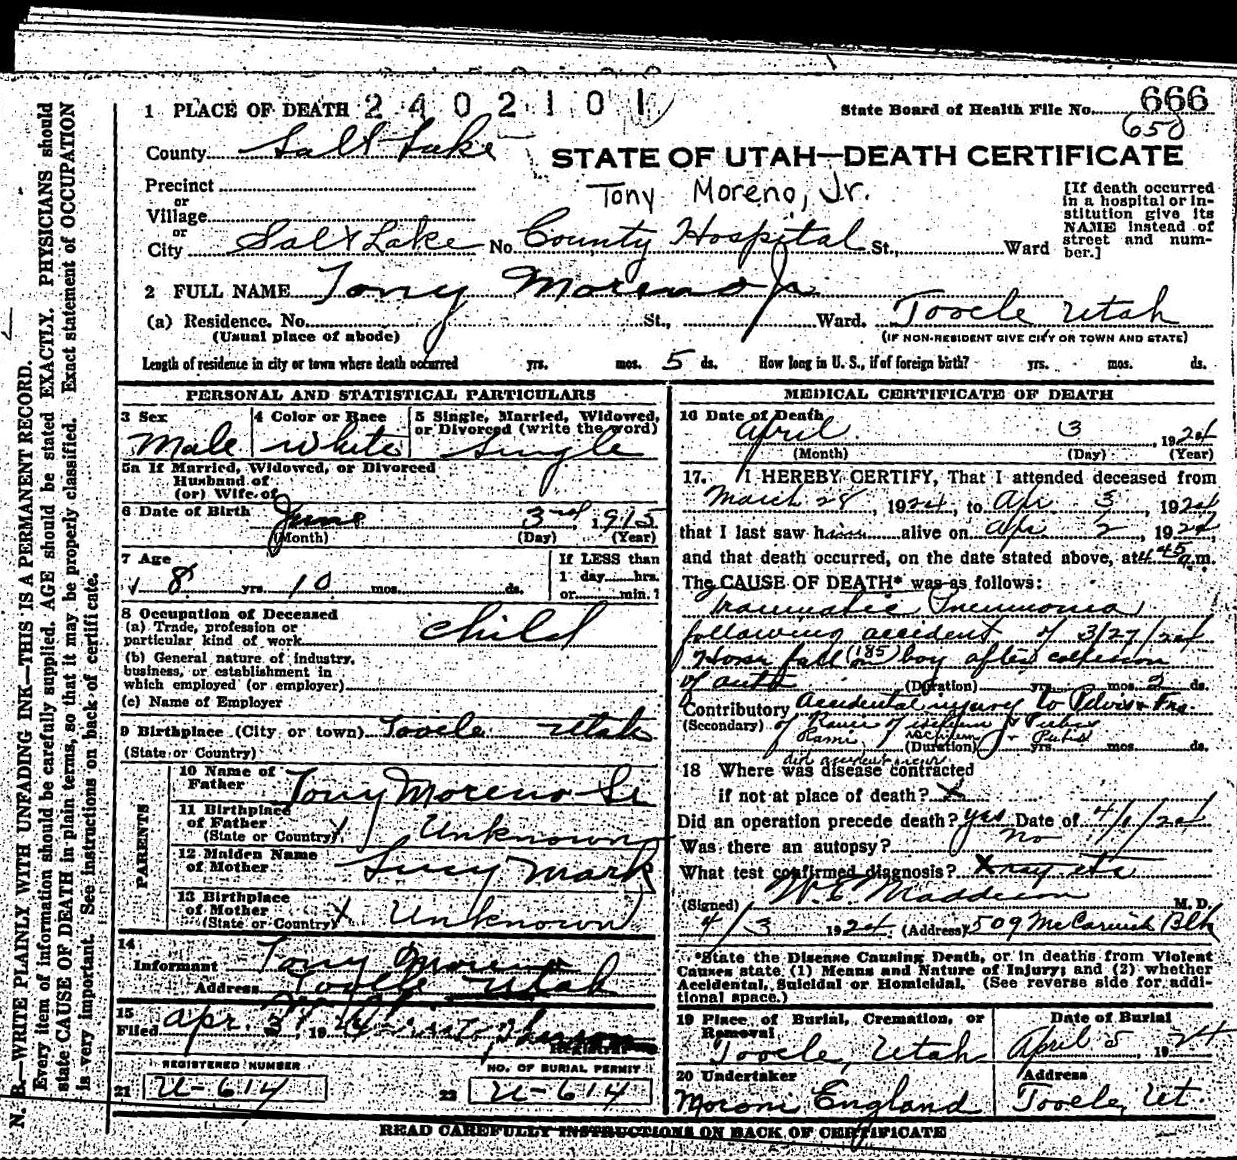 2402101
1 PLACE OF DEATH
State Board of Health File No. 666
650
County Salt Lake
STATE OF UTAH—DEATH CERTIFICATE
Tony Moreno, Jr.
Precinct
or
Village
or
City Salt Lake No. County Hospital St., Ward
[If death occurred in a hospital or institution give its NAME instead of street and number.]
2 FULL NAME Tony Moreno Jr
(a) Residence. No. St., Ward. Tooele Utah
(Usual place of abode) (IF NON-RESIDENT GIVE CITY OR TOWN AND STATE)
Length of residence in city or town where death occurred yrs. mos. 5 ds. How long in U. S., if of foreign birth? yrs. mos. ds.
PERSONAL AND STATISTICAL PARTICULARS
3 Sex Male
4 Color or Race White
5 Single, Married, Widowed, or Divorced (write the word) Single
5a If Married, Widowed, or Divorced
Husband of
(or) Wife of
6 Date of Birth June 3rd, 1915
(Month) (Day) (Year)
7 Age 8 yrs. 10 mos. ds.
If LESS than
1 day hrs.
or min.?
8 Occupation of Deceased
(a) Trade, profession or
particular kind of work child
(b) General nature of industry,
business, or establishment in
which employed (or employer)
(c) Name of Employer
9 Birthplace (City or town) Tooele Utah
(State or Country)
PARENTS
10 Name of Father Tony Moreno Sr
11 Birthplace of Father (State or Country) X Unknown
12 Maiden Name of Mother Lucy Mark
13 Birthplace of Mother (State or Country) X Unknown
14
Informant Tony Moreno
Address Tooele Utah
15
Filed Apr. 3, 1924
Registrar
REGISTERED NUMBER
21 U-614
NO. OF BURIAL PERMIT
22 U-614
MEDICAL CERTIFICATE OF DEATH
16 Date of Death
April 3, 1924
(Month) (Day) (Year)
17. I HEREBY CERTIFY, That I attended deceased from
March 28, 1924, to Apr. 3, 1924
that I last saw him alive on Apr. 2, 1924,
and that death occurred, on the date stated above, at 4 45 a.m.
The CAUSE OF DEATH* was as follows:
Traumatic Pneumonia
following accident of 3/27/24
Horse fall (185) on boy after collision
of auto (Duration) yrs. mos. 2 ds.
Contributory Accidental injury to Pelvis & Fra.
(Secondary) of Rami of ischium & Pubis
Rami of ischium & Pubis
(Duration) yrs. mos. ds.
did accident occur
18 Where was disease contracted
if not at place of death? X
Did an operation precede death? yes Date of 4/1/24
Was there an autopsy? no
What test confirmed diagnosis? X ray etc
(Signed) W. E. Maddison M. D.
4/3 1924. (Address) 509 McCornick Blk
*State the Disease Causing Death, or in deaths from Violent
Causes state (1) Means and Nature of Injury; and (2) whether
Accidental, Suicidal or Homicidal. (See reverse side for addi-
tional space.)
19 Place of Burial, Cremation, or Removal
Tooele, Utah
Date of Burial
April 5, 1924
20 Undertaker
Moroni England
Address
Tooele, Ut.
READ CAREFULLY INSTRUCTIONS ON BACK OF CERTIFICATE
N. B.—WRITE PLAINLY WITH UNFADING INK—THIS IS A PERMANENT RECORD.
Every item of information should be carefully supplied. AGE should be stated EXACTLY. PHYSICIANS should
state CAUSE OF DEATH in plain terms, so that it may be properly classified. Exact statement of OCCUPATION
is very important. See instructions on back of certificate.